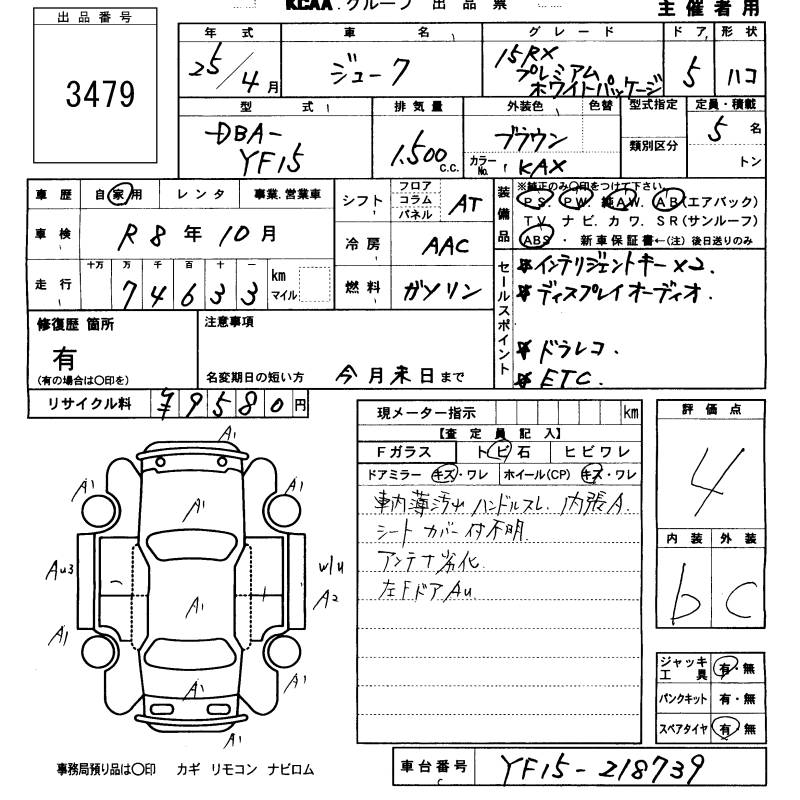 KCAA.グループ 出品票
主催者用
出品番号
3479
年式 車名 グレード ドア 形状
25/4月 ジューク 15RX プレミアム ホワイトパッケージ 5 ハコ
型式 排気量 外装色 色替 型式指定 定員・積載
DBA- YF15 1,500 c.c. ブラウン 類別区分 5名
カラーNo. KAX トン
車歴 自家用 レンタ 事業.営業車
シフト フロア コラム パネル AT
装備品 ※純正のみ〇印をつけて下さい
P.S. P.W. 純A.W. A.B(エアバック)
T.V. ナビ. カワ. S.R(サンルーフ)
ABS・新車保証書←(注)後日送りのみ
車検 R8年10月
冷房 AAC
走行 十万 万 千 百 十 一
74633 km マイル
燃料 ガソリン
セールスポイント
☆インテリジェントキー×2.
☆ディスプレイオーディオ.
☆ドラレコ.
☆ETC.
修復歴 箇所
有
(有の場合は〇印を)
注意事項
名変期日の短い方 今月末日まで
リサイクル料 ¥9580円
現メーター指示 km
【査定員記入】
Fガラス トビ石 ヒビワレ
ドアミラー キズ・ワレ ホイール(CP) キズ・ワレ
車内薄汚レ ハンドルスレ. 内張A.
シートカバー付不明.
アンテナ劣化.
左FドアAu
評価点
4
内装 外装
b C
A1
A1 A1 A1
Au3 A1 W/U A2
A1 A1 A1
A1
ジャッキ工具 有・無
パンクキット 有・無
スペアタイヤ 有・無
事務局預り品は〇印 カギ リモコン ナビロム
車台番号 YF15-218739